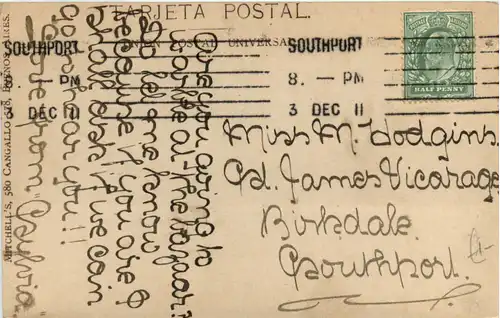 TARJETA POSTAL.
UNION POSTAL UNIVERSAL
SOUTHPORT
PM
3 DEC 11
SOUTHPORT
8. - PM
3 DEC 11
HALF PENNY
Miss M. Hodgins.
St. James Vicarage
Birkdale.
Southport.
Are you going to
work at the bazaar?
Do let me know
because if you are I
should ask if we can
near you!!
Love from "Sylvia"
MITCHELL'S, 580 CANGALLO 578, BUENOS AIRES.